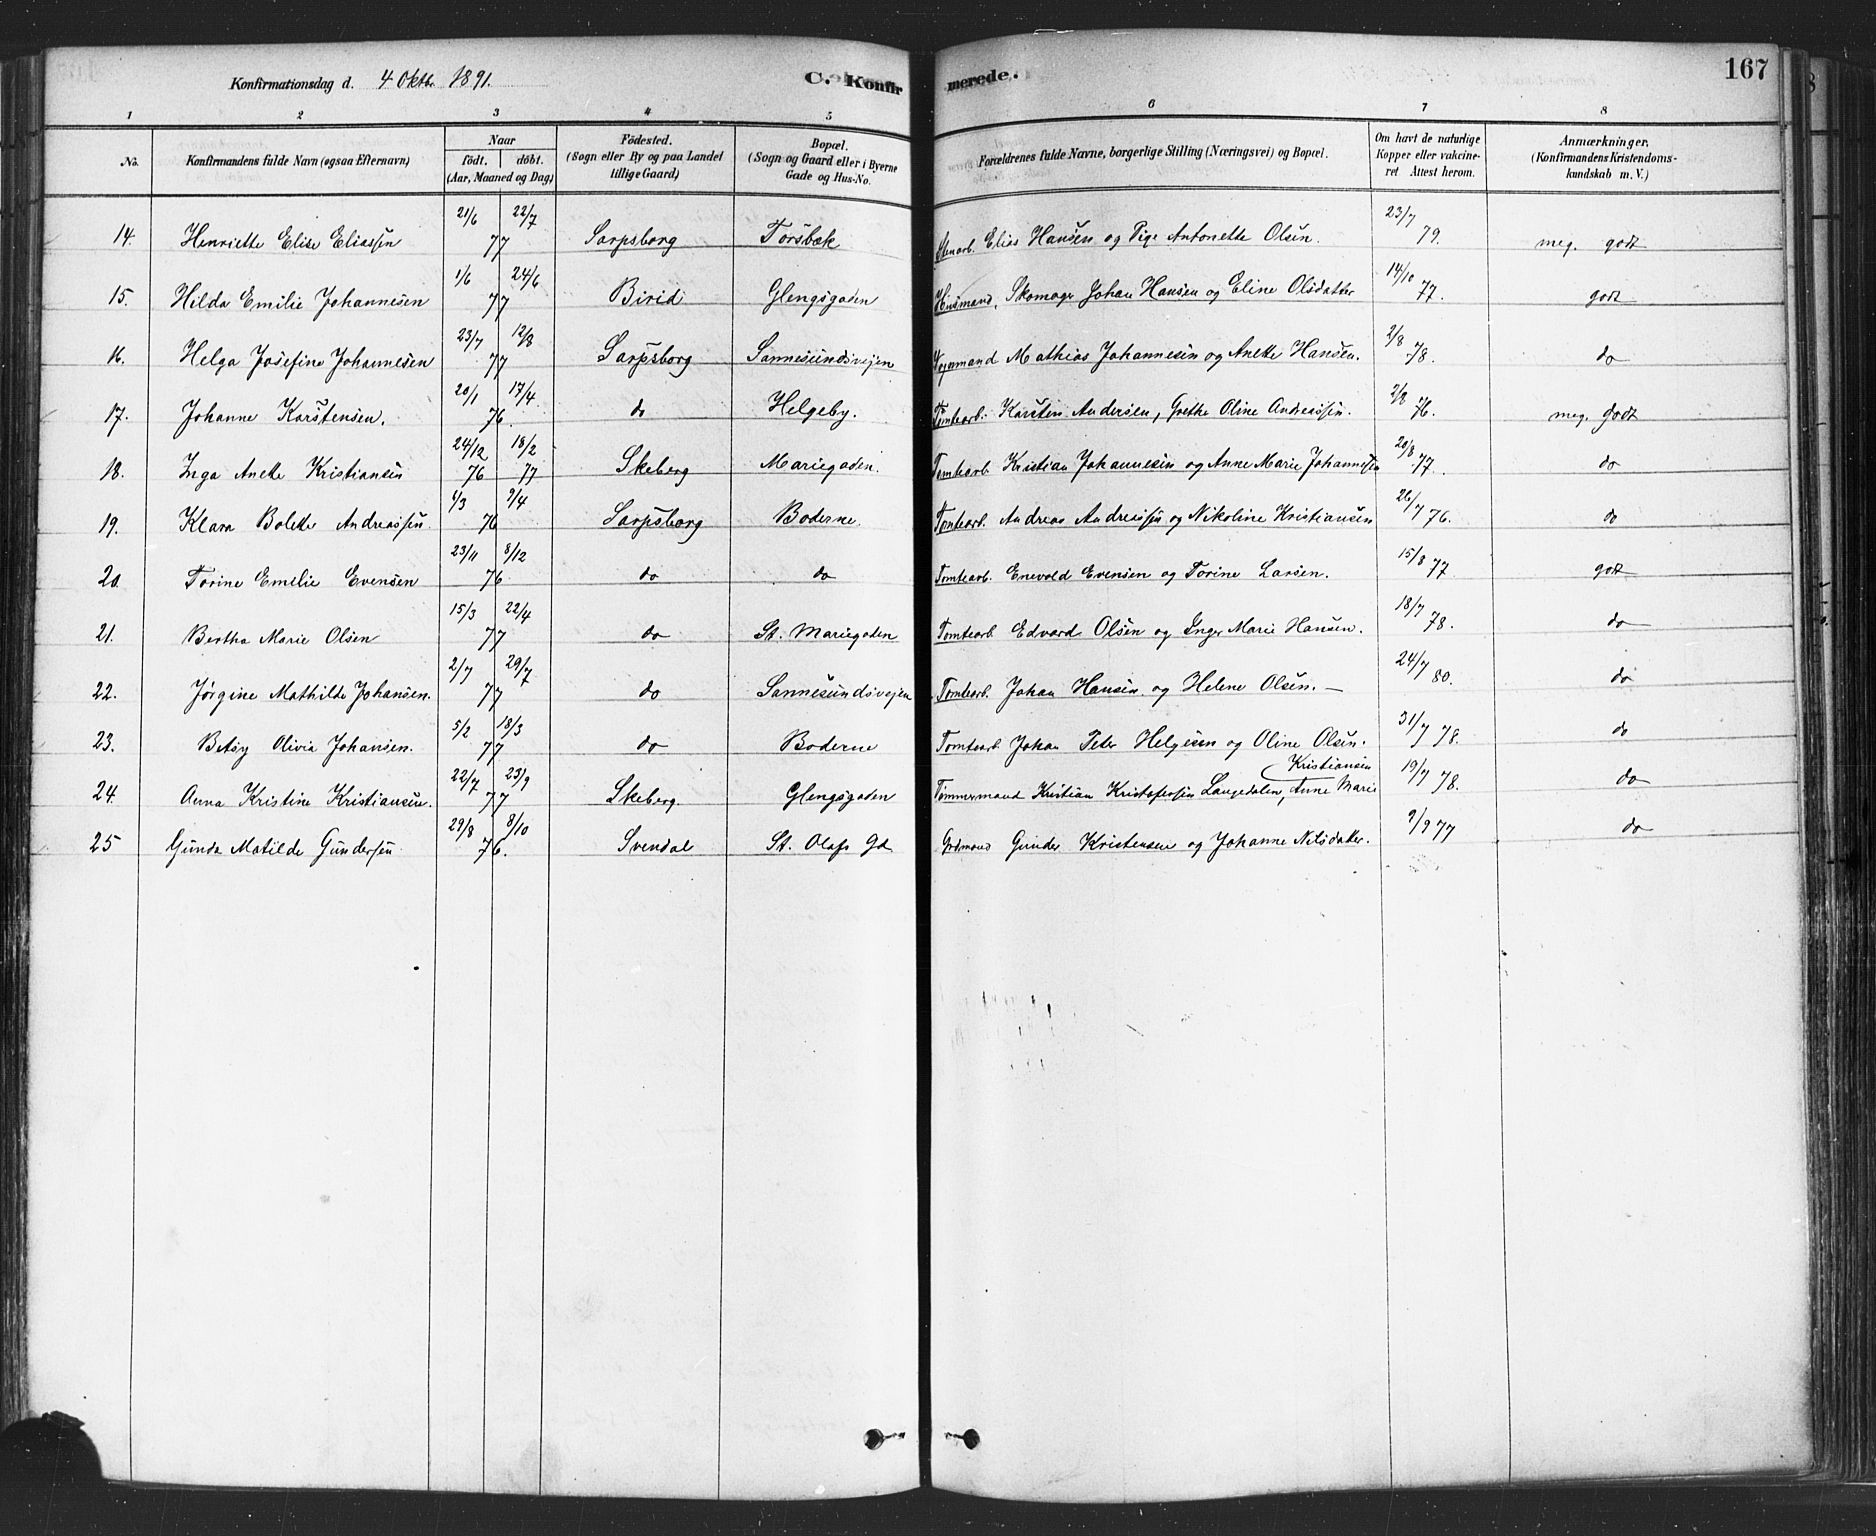 Konfirmationsdag d. 4 Oktb. 1891. C. Konfirmerede. 167
1 2 3 4 5 6 7 8
No. Konfirmandens fulde Navn (ogsaa Efternavn) Naar födt. döbt. (Aar, Maaned og Dag) Födested. (Sogn eller By og paa Landet tillige Gaard) Bopæl. (Sogn og Gaard eller i Byerne Gade og Hus-No. Forældrenes fulde Navne, borgerlige Stilling (Næringsvei) og Bopæl. Om havt de naturlige Kopper eller vakcineret Attest herom. Anmærkninger. (Konfirmandens Kristendomskundskab m. V.)
14. Henriette Elise Eliassen 21/6 22/7 77 Sarpsborg Torsbæk Stenarb. Elias Hansen og Pige Antonette Olsen. 23/7 79. meg. godt
15. Hilda Emilie Johannesen 1/6 24/6 77 Birid Glengsgaden Husmand, Skomager Johan Hansen og Eline Olsdatter 14/10 77. godt
16. Helga Josefine Johannesen 23/7 12/8 77 Sarpsborg Sannesundsvejen Mathias Johannesen og Anette Hansen. 2/8 78. do
17. Johanne Karstensen. 20/1 17/4 76. do Helgeby. Tomtearb. Karsten Andersen, Grethe Oline Andreassen. 2/8 76. meg. godt
18. Inga Anette Kristiansen 24/12 76 18/2 77 Skeberg Mariegaden. Tomtearb. Kristian Johannesen og Anne Marie Johannesen 20/8 77. do
19. Klara Bolette Andreassen 1/3 9/4 76 Sarpsborg Boderne. Tomtearb. Andreas Andreassen og Nikoline Kristiansen 26/7 76. do
20. Torine Emelie Evensen 23/11 8/12 76 do do Tomtearb. Enevold Evensen og Torine Larsen. 15/8 77 godt
21. Bertha Marie Olsen 15/3 22/4 77 do St. Mariegaden Tomtearb. Edvard Olsen og Inger Marie Hansen. 18/7 78. do
22. Jørgine Mathilde Johansen. 2/7 29/7 77 do Sannesundsvejen Tomtearb. Johan Hansen og Helene Olsen. — 24/7 80. do
23. Betsy Olivia Johansen. 5/2 18/3 77 do Boderne Tomtearb. Johan Peter Helgesen og Oline Olsen. 31/7 78. do
24. Anna Kristine Kristiansen. 22/7 23/9 77 Skeberg. Glengsgaden Tømmermand Kristian Kristofersen Langedalen, Anne Marie Kristiansen 19/7 78. do
25 Gunda Matilde Gundersen 29/8 8/10 76. Svendal St. Olafs Gd Gunder Kristensen og Johanne Nilsdatter. 9/9 77 do